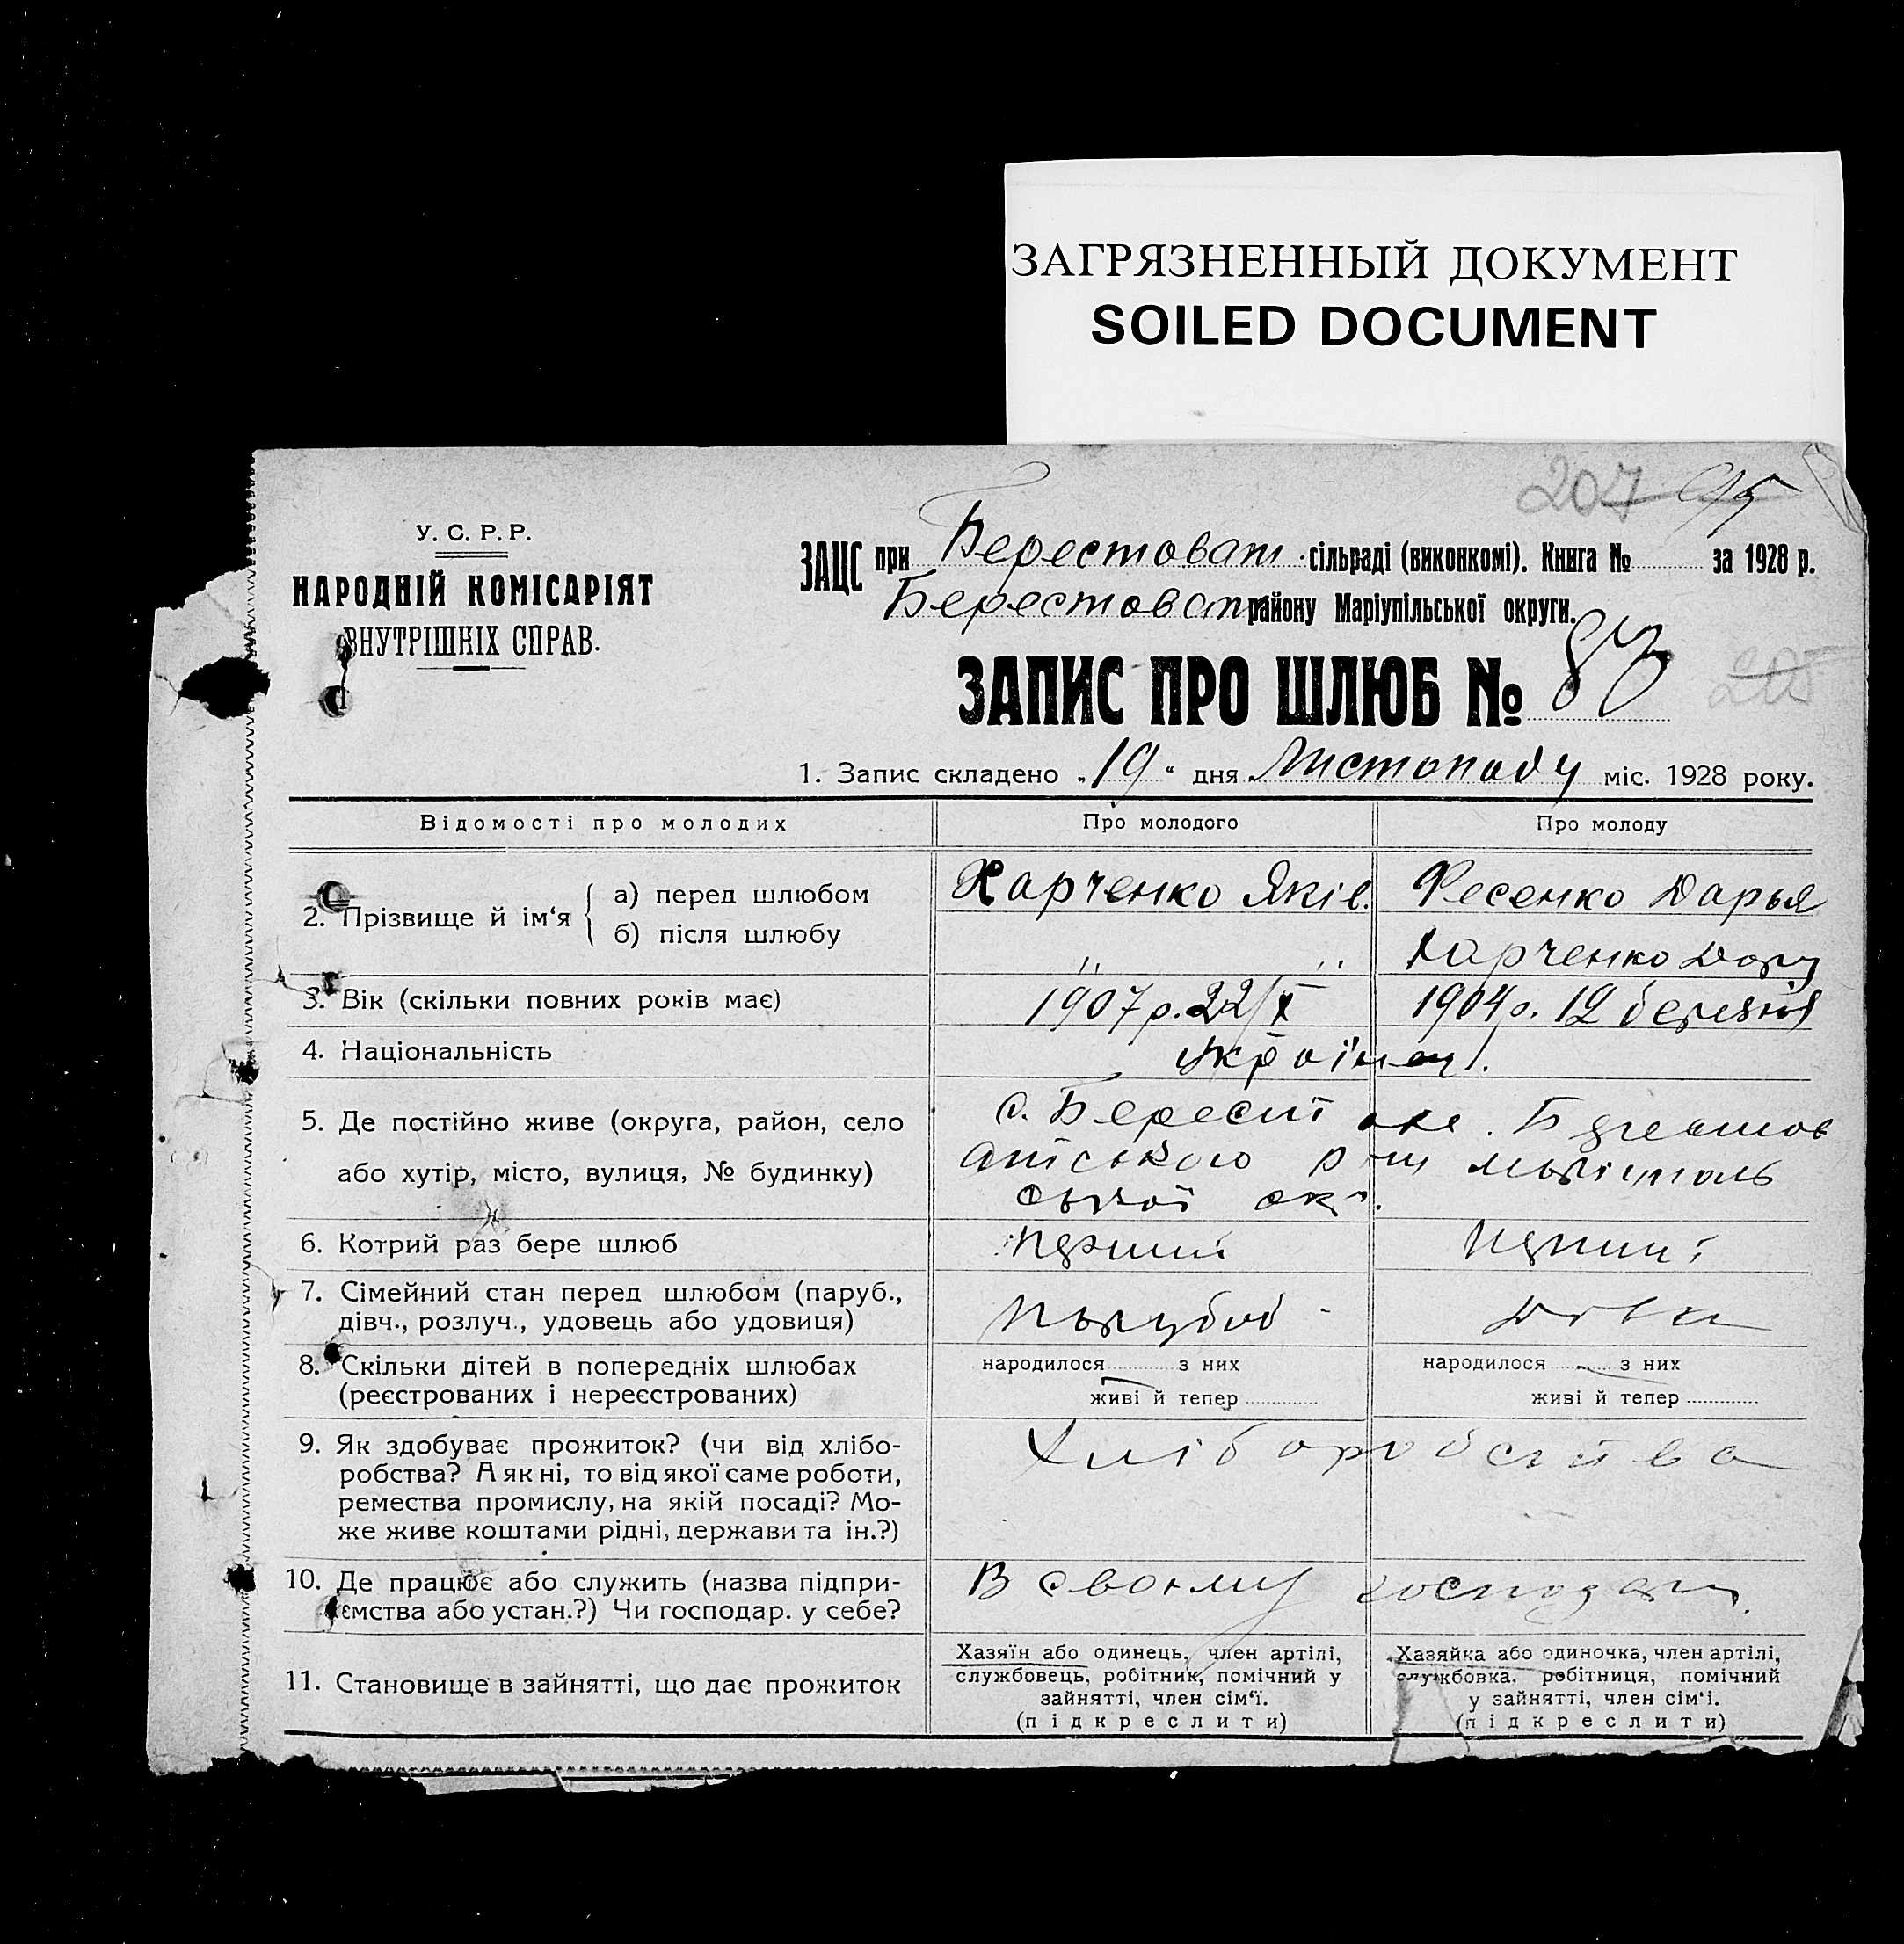 ЗАГРЯЗНЕННЫЙ ДОКУМЕНТ
SOILED DOCUMENT
207
У. С. Р. Р.
НАРОДНІЙ КОМІСАРІЯТ
ВНУТРІШНІХ СПРАВ.
ЗАЦС при Берестоват. сільраді (виконкомі). Книга № за 1928 р.
Берестоват району Маріупільської округи.
ЗАПИС ПРО ШЛЮБ №
205
1. Запис складено „19“ дня Листопаду міс. 1928 року.
Відомості про молодих Про молодого Про молоду
2. Прізвище й ім‘я
а) перед шлюбом Харченко Яків. Фесенко Дарья
б) після шлюбу „ „ Харченко
3. Вік (скільки повних років має) 1907 р. 22/X 1904 р. 12 березня
4. Національність Українці.
5. Де постійно живе (округа, район, село
або хутір, місто, вулиця, № будинку)
с. Берест
6. Котрий раз бере шлюб Перший Перший
7. Сімейний стан перед шлюбом (паруб.,
дівч., розлуч., удовець або удовиця)
Парубок Дівка
8. Скільки дітей в попередніх шлюбах
(реєстрованих і нереєстрованих)
народилося з них
живі й тепер
народилося з них
живі й тепер
9. Як здобуває прожиток? (чи від хлібо-
робства? А як ні, то від якої саме роботи,
ремества промислу, на якій посаді? Мо-
же живе коштами рідні, держави та ін.?)
Хліборобства
10. Де працює або служить (назва підпри-
ємства або устан.?) Чи господар. у себе?
В своєму господар.
11. Становище в зайнятті, що дає прожиток
Хазяїн або одинець, член артілі,
службовець, робітник, помічний у
зайнятті, член сім‘ї.
(підкреслити)
Хазяйка або одиночка, член артілі,
службовка, робітниця, помічний
у зайнятті, член сім‘ї.
(підкреслити)